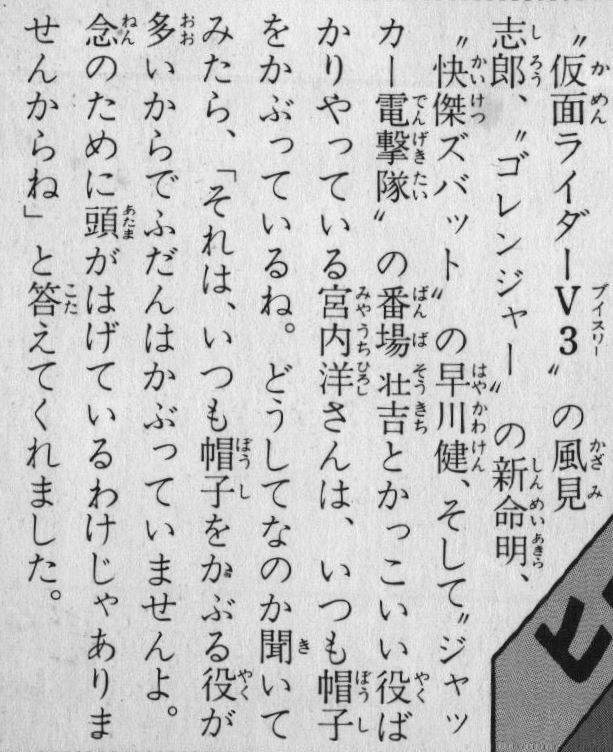 〝仮面ライダーV3〟の風見
志郎、〝ゴレンジャー〟の新命明、
〝快傑ズバット〟の早川健、そして〝ジャッ
カー電撃隊〟の番場壮吉とかっこいい役ば
かりやっている宮内洋さんは、いつも帽子
をかぶっているね。どうしてなのか聞いて
みたら、「それは、いつも帽子をかぶる役が
多いからでふだんはかぶっていませんよ。
念のために頭がはげているわけじゃありま
せんからね」と答えてくれました。